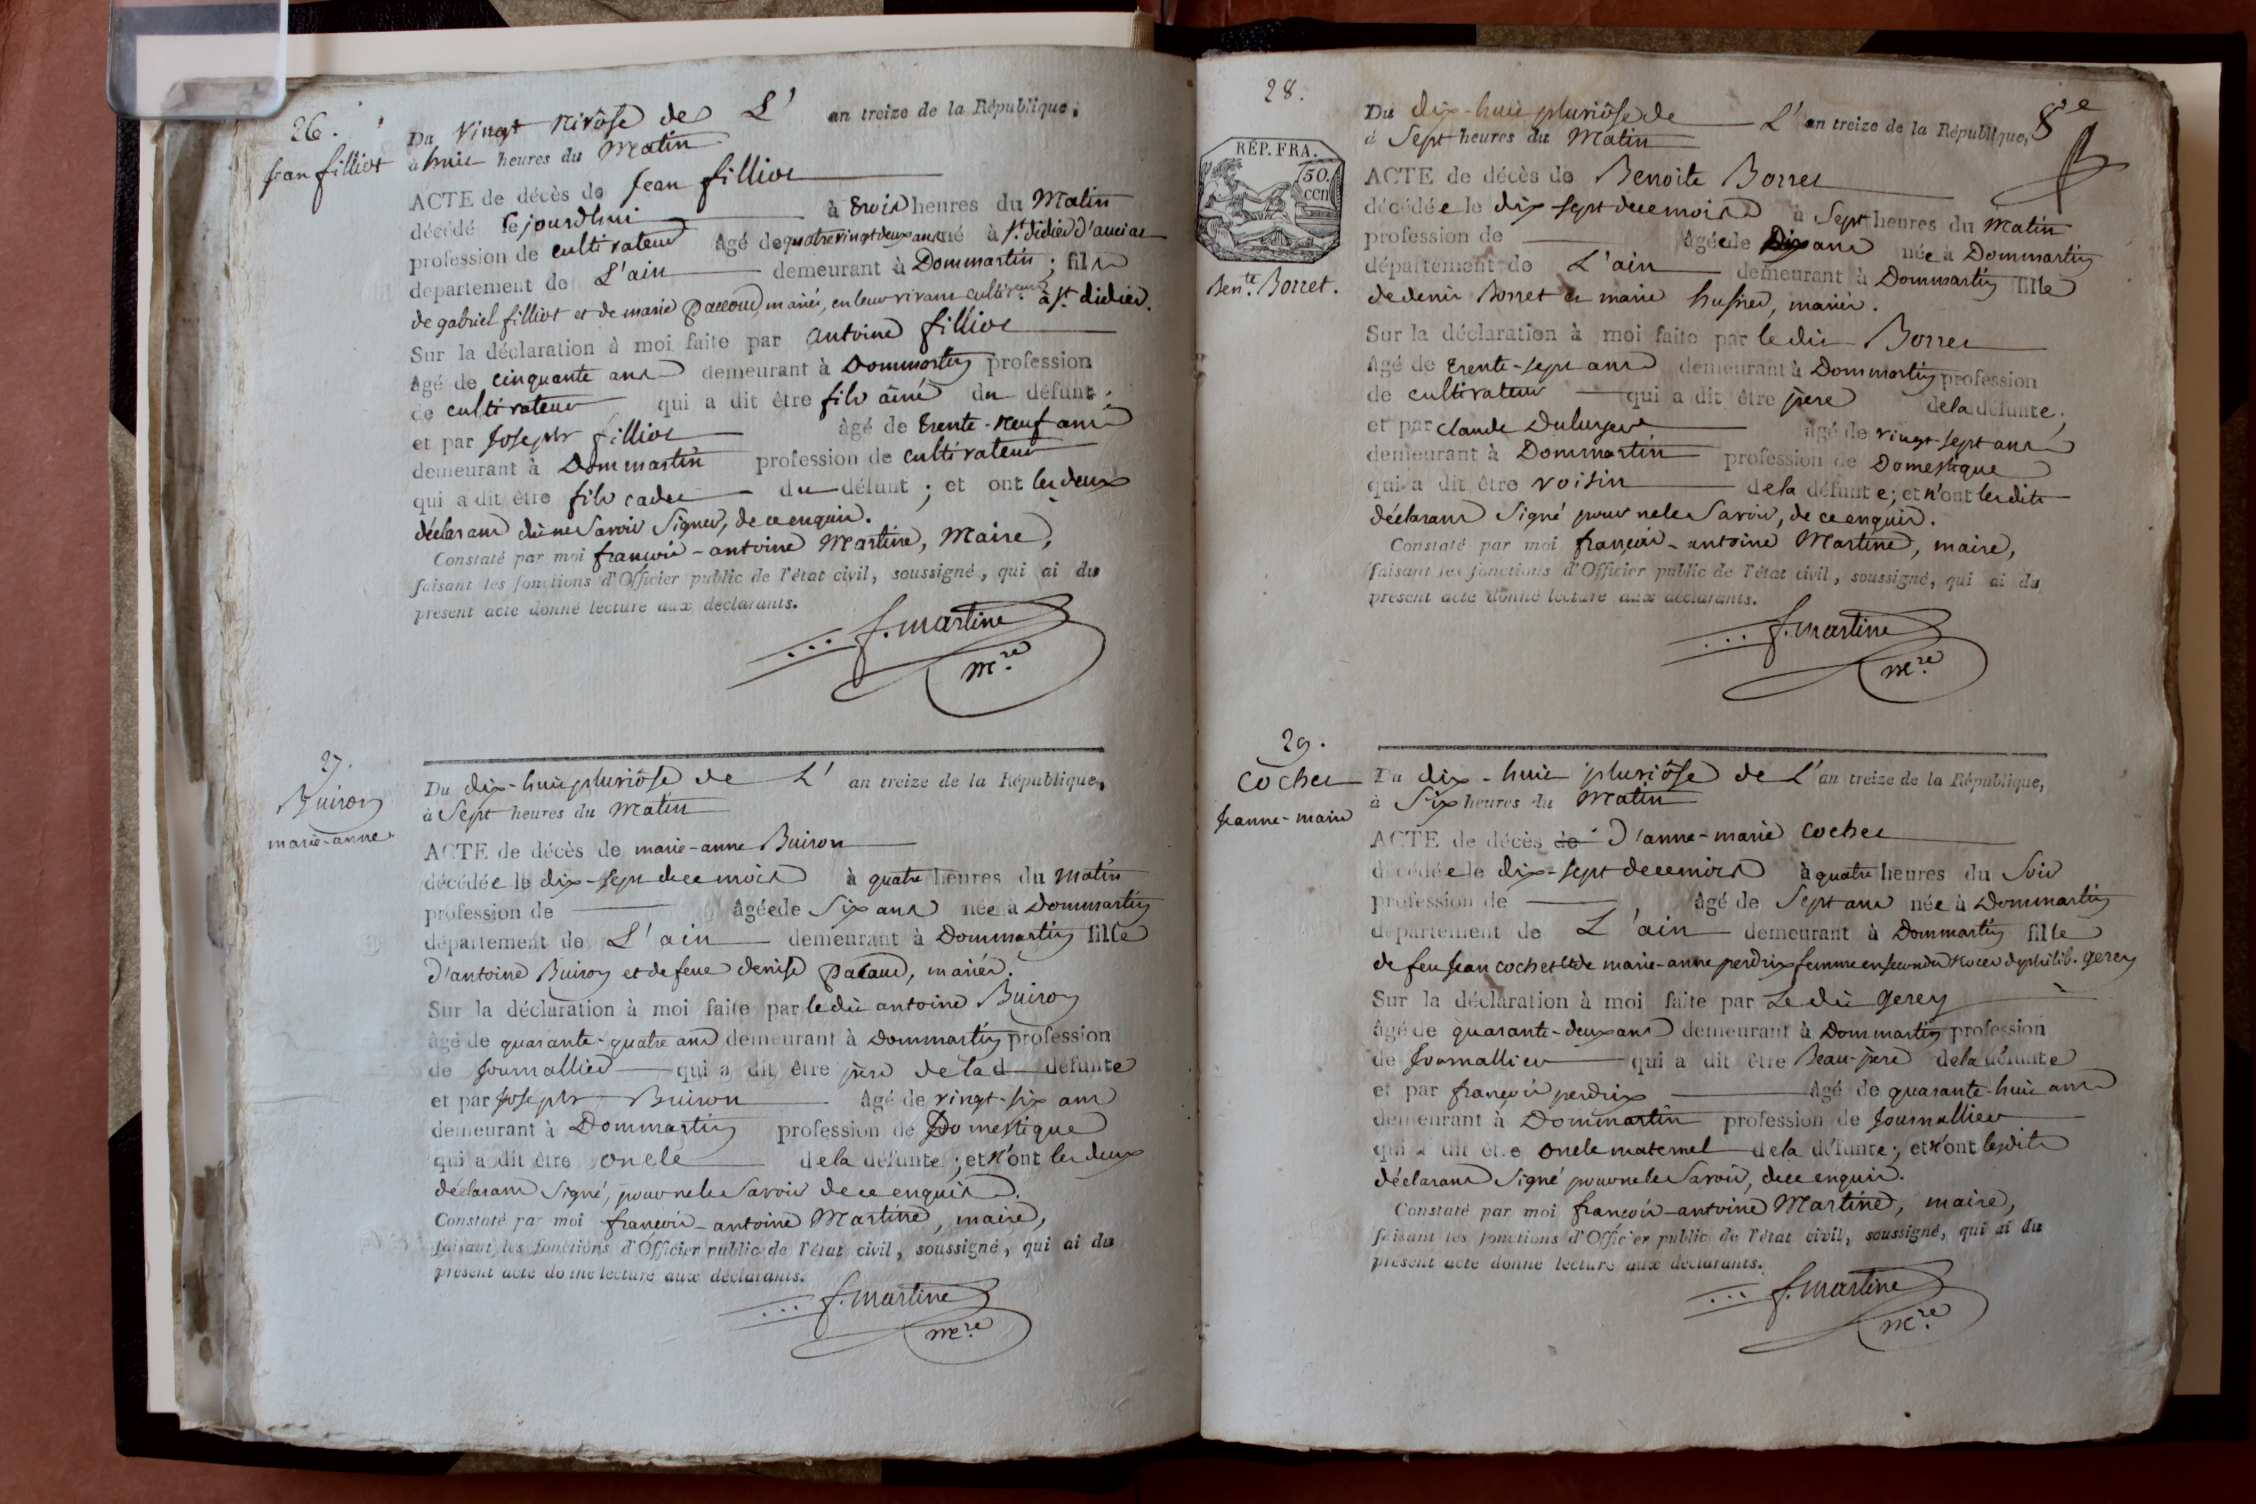 26.
Jean filliot
Du vingt Nivôse de L' an treize de la République,
à huit heures du Matin
ACTE de décès de Jean filliot
décédé le jourdhui à trois heures du Matin
profession de cultivateur âgé de quatrevingtdeux ans né à St. didier d'aussiat
département de L'ain demeurant à Dommartin ; fils
de gabriel filliot et de marie Paccoud, mariés, en leur vivant cultivrs. à St. didier.
Sur la déclaration à moi faite par antoine filliot
âgé de cinquante ans demeurant à Dommartin profession
de cultivateur qui a dit être fils aîné du défunt ;
et par Joseph filliot âgé de trente-neuf ans
demeurant à Dommartin profession de cultivateur
qui a dit être fils cadet du défunt ; et ont les deux
déclarans dit ne savoir signer, de ce enquis.
Constaté par moi françois-antoine Martine, Maire,
faisant les fonctions d'Officier public de l'état civil, soussigné, qui ai du
présent acte donné lecture aux déclarants.
f. martine
mre.
27.
Buiron
marie-anne
Du dix-huit pluviôse de L' an treize de la République,
à Sept heures du Matin
ACTE de décès de marie-anne Buiron
décédée le dix-sept de ce mois à quatre heures du matin
profession de âgée de Six ans née à Dommartin
département de L'ain demeurant à Dommartin fille
d'antoine Buiron et de feue denise Pacaud, mariés.
Sur la déclaration à moi faite par ledit antoine Buiron
âgé de quarante-quatre ans demeurant à Dommartin profession
de Journallier qui a dit être père de la d défunte
et par Joseph Buiron âgé de vingt-six ans
demeurant à Dommartin profession de Domestique
qui a dit être oncle de la défunte ; et n'ont les deux
déclarans signé, pour ne le savoir de ce enquis.
Constaté par moi françois-antoine Martine, maire,
faisant les fonctions d'Officier public de l'état civil, soussigné, qui ai du
présent acte donné lecture aux déclarants.
f. martine
mre.
28.
8e
RÉP. FRA.
50.
cen
Bente. Borret.
Du dix-huit pluviôse de L'an treize de la République,
à Sept heures du Matin
ACTE de décès de Benoite Borret
décédée le dix-sept de ce mois à Sept heures du Matin
profession de âgée de Dix ans née à Dommartin
département de L'ain demeurant à Dommartin fille
de denis Borret et marie , mariés.
Sur la déclaration à moi faite par le dit Borret
âgé de trente-sept ans demeurant à Dommartin profession
de cultivateur qui a dit être père de la défunte ;
et par claude âgé de vingt-sept ans
demeurant à Dommartin profession de Domestique
qui a dit être voisin de la défunte ; et n'ont lesdits
déclarans Signé pour ne le savoir, de ce enquis.
Constaté par moi françois-antoine Martine, maire,
faisant les fonctions d'Officier public de l'état civil, soussigné, qui ai du
présent acte donné lecture aux déclarants.
f. martine
mre.
29.
Cochet
Jeanne-marie
Du dix-huit pluviôse de L'an treize de la République,
à Six heures du Matin
ACTE de décès de D'anne-marie Cochet
décédée le dix-sept de ce mois à quatre heures du Soir
profession de âgé de Sept ans née à Dommartin
département de L'ain demeurant à Dommartin fille
de feu Jean cochet et de marie-anne perdrix femme en secondes noces de philib. gerey
Sur la déclaration à moi faite par Le dit gerey
âgé de quarante-deux ans demeurant à Dommartin profession
de Journallier qui a dit être Beau-père de la défunte
et par françois perdrix âgé de quarante-huit ans
demeurant à Dommartin profession de Journallier
qui a dit être oncle maternel de la défunte ; et n'ont lesdits
déclarans Signé pour ne le savoir, de ce enquis.
Constaté par moi françois-antoine Martine, maire,
faisant les fonctions d'Officier public de l'état civil, soussigné, qui ai du
présent acte donné lecture aux déclarants.
f. martine
mre.